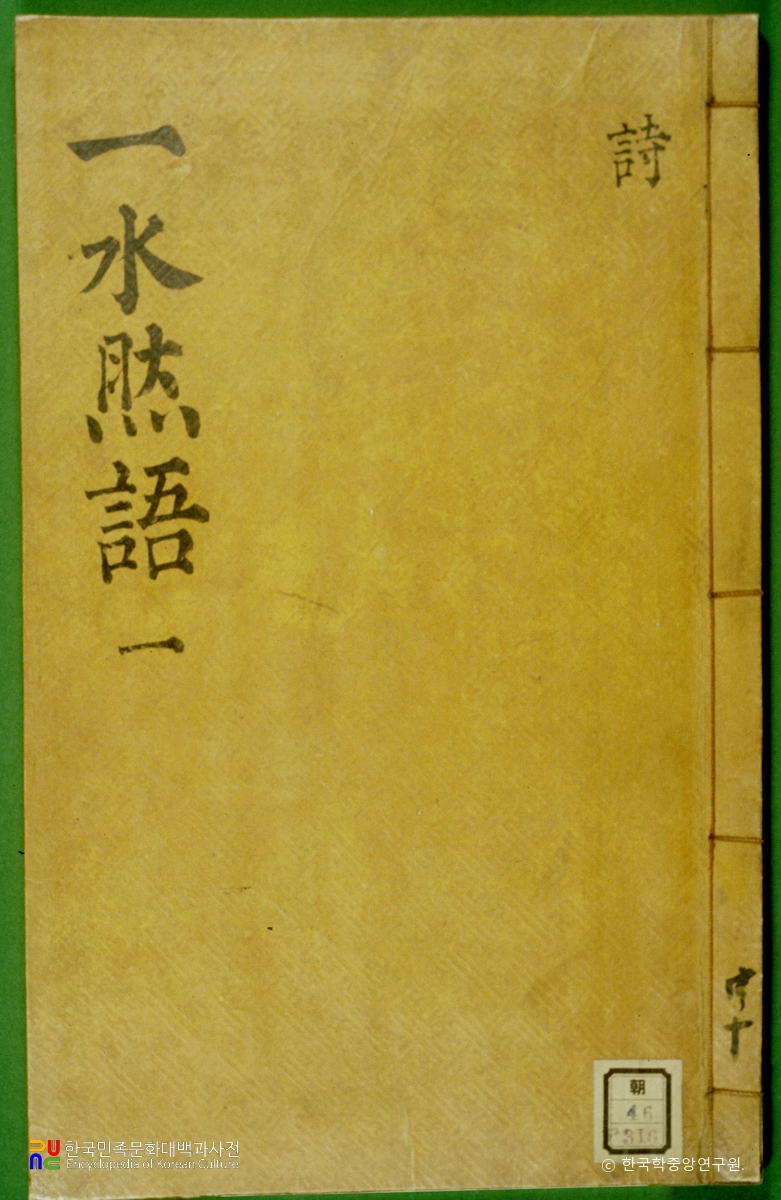 詩
一水然語 一
共十
朝
46
한국민족문화대백과사전
Encyclopedia of Korean Culture
ⓒ 한국학중앙연구원.